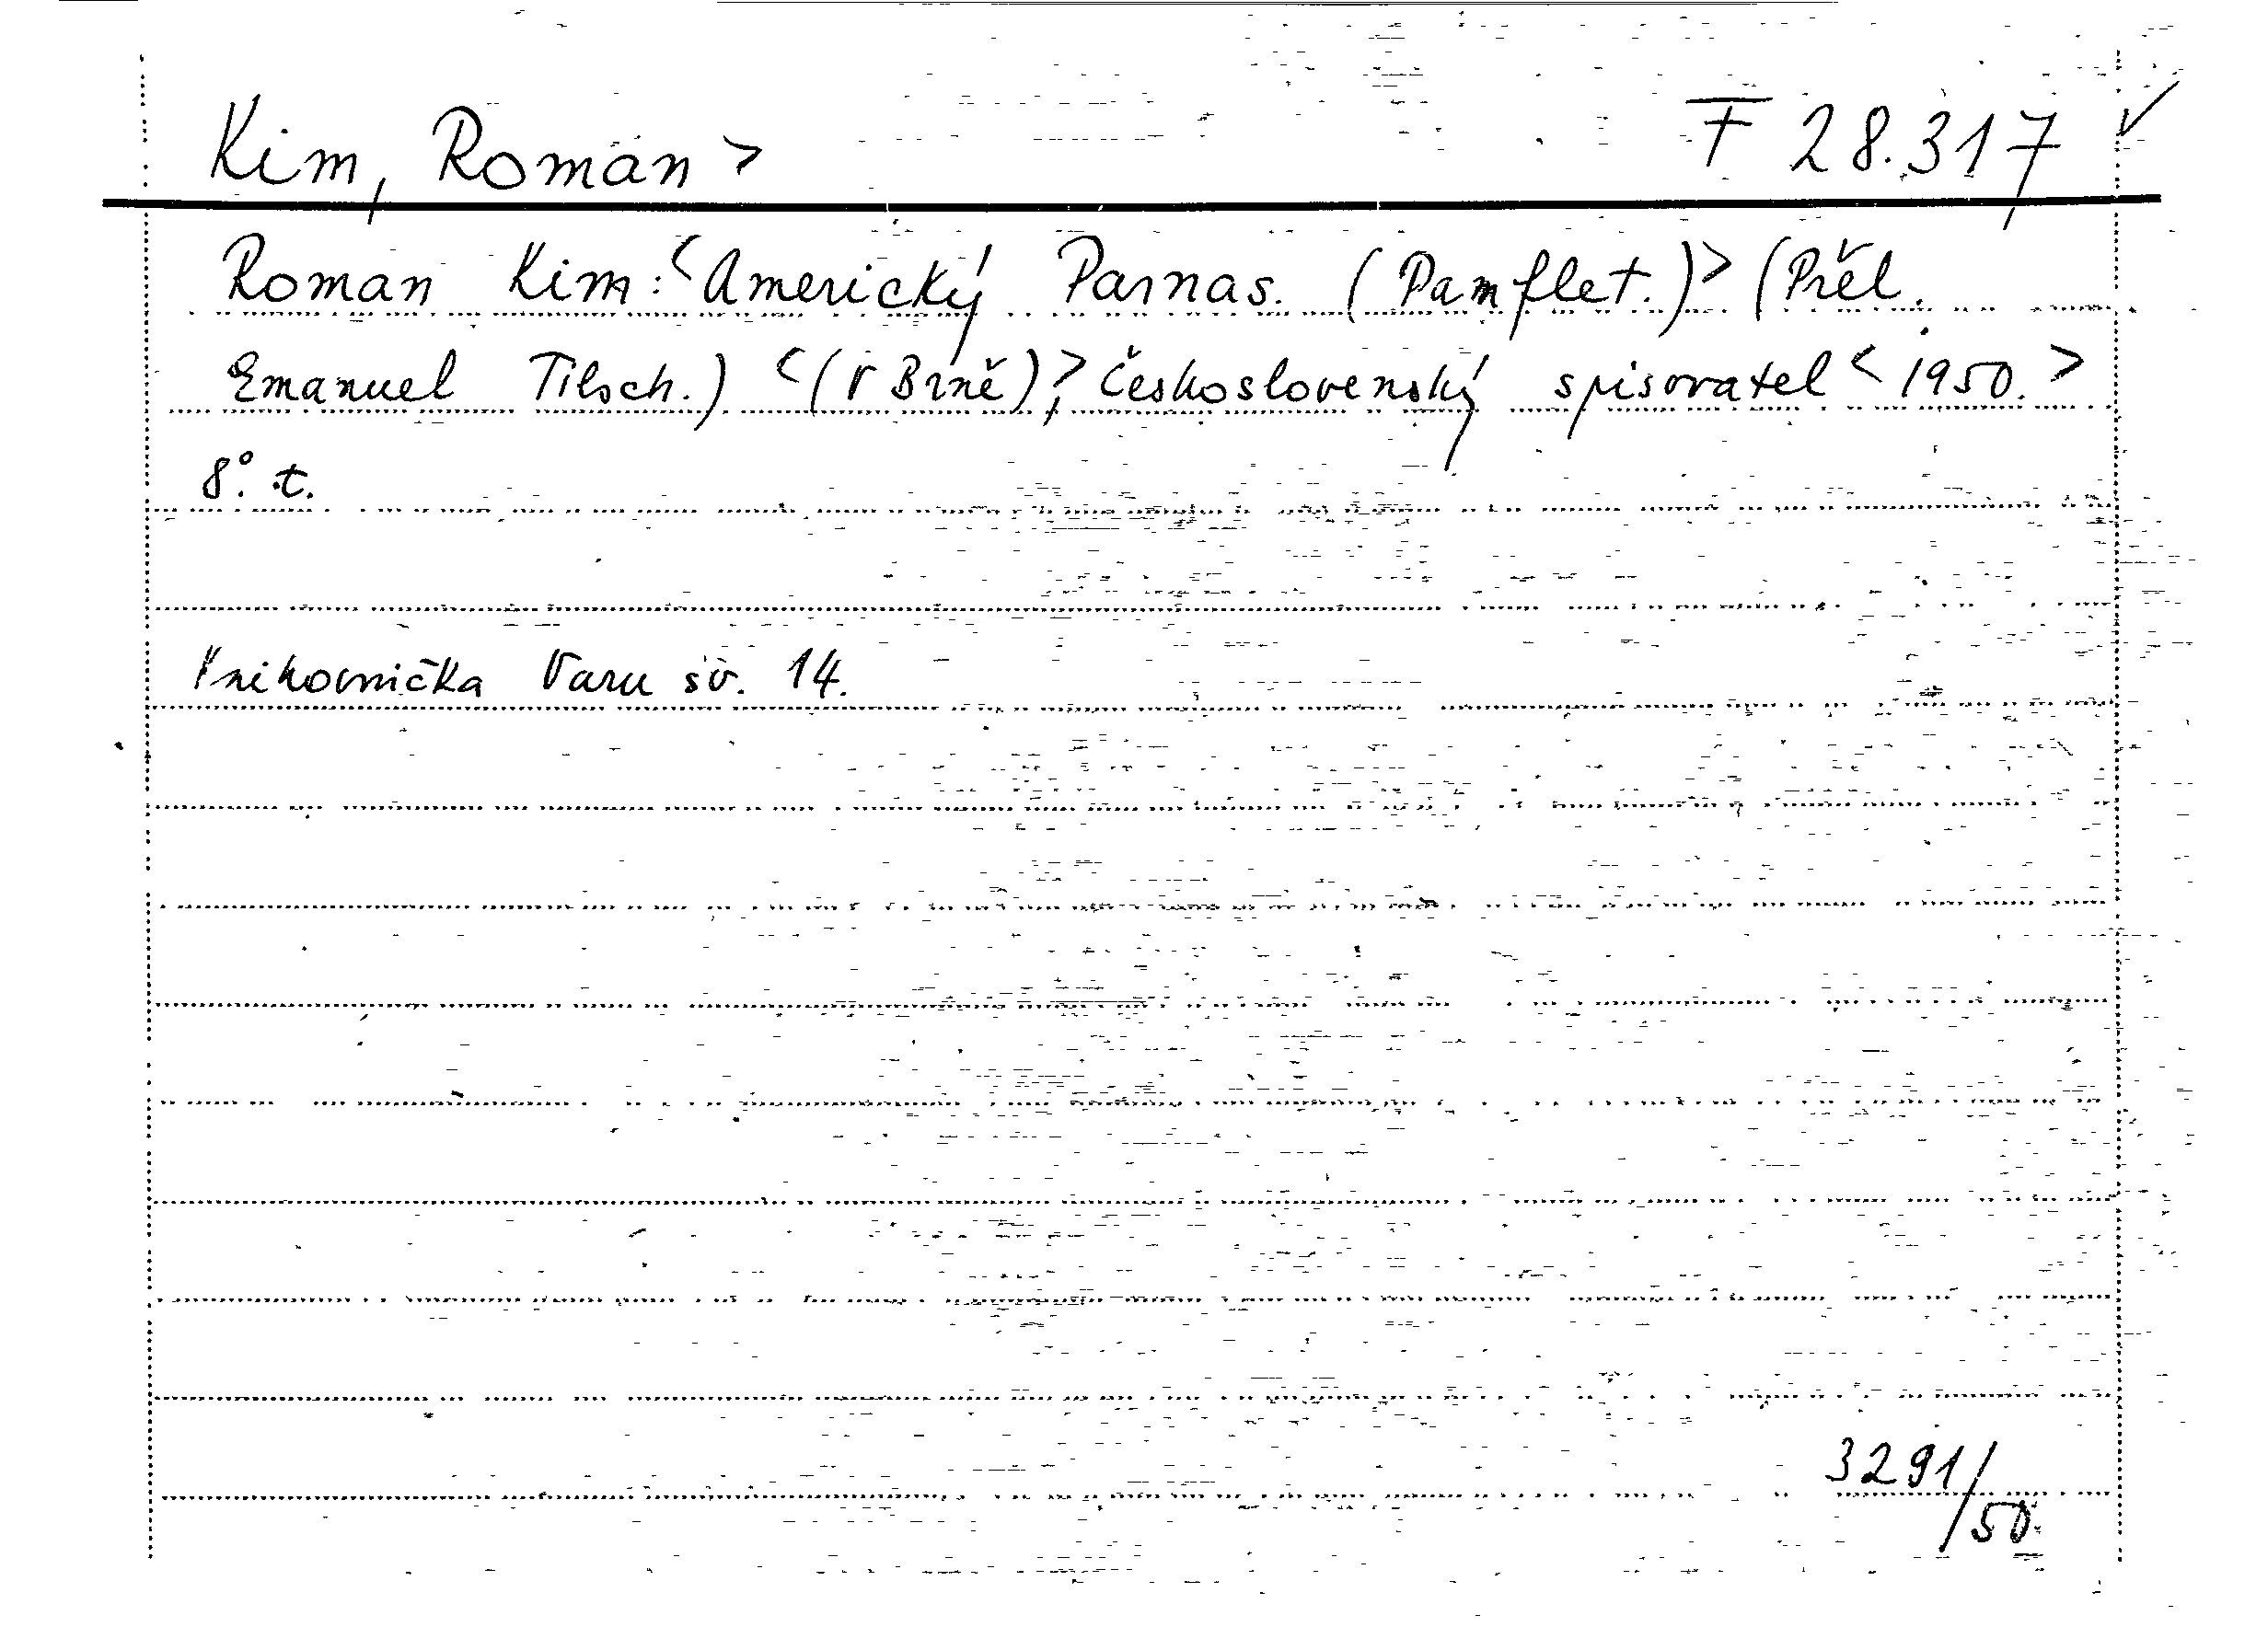 Kim, Roman > F 28.317 ✓
Roman Kim: <Americký Parnas. (Pamflet.)> (Přel.
Emanuel Tilsch.) <(V Brně),> Československý spisovatel <1950.>
8°. t.
Knihovnička Varu sv. 14.
3291/50.